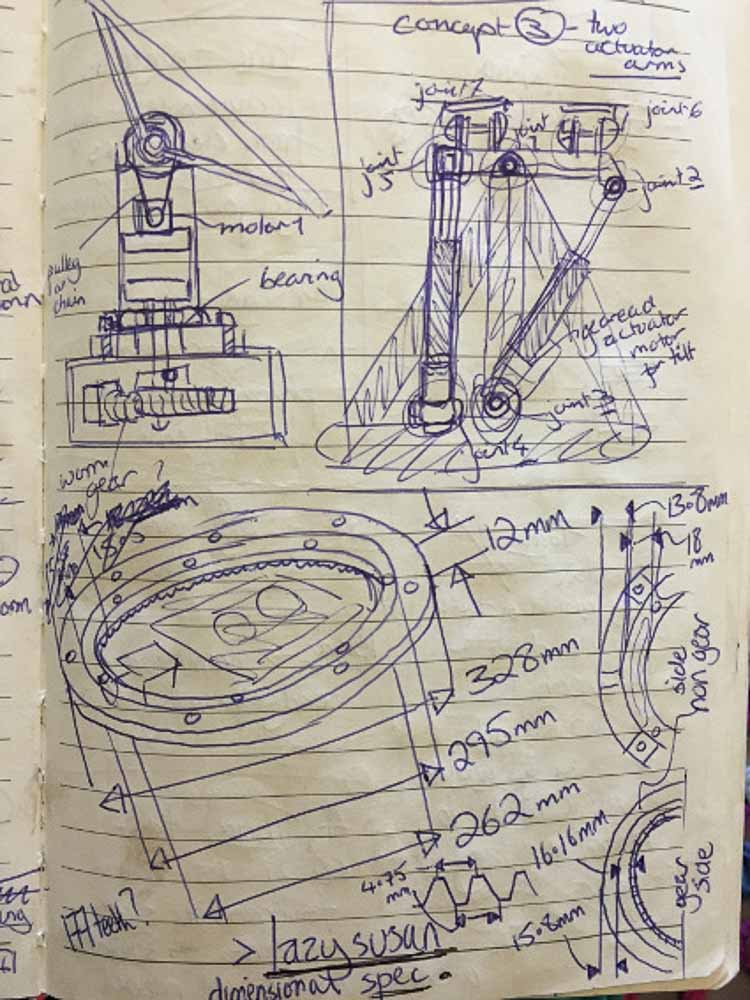 concept 3 - two
actuator
arms
joint 7
joint 6
joint
1
joint
5
joint 2
motor 1
pulley
or
chain
bearing
actuator
motor
for tilt
joint 3
joint 4
worm
gear ?
13.8mm
18
mm
12mm
328mm
side
non gear
295mm
262mm
4.75
mm
16.16mm
15.8mm
gear
side
teeth?
> lazy susan
dimensional spec.